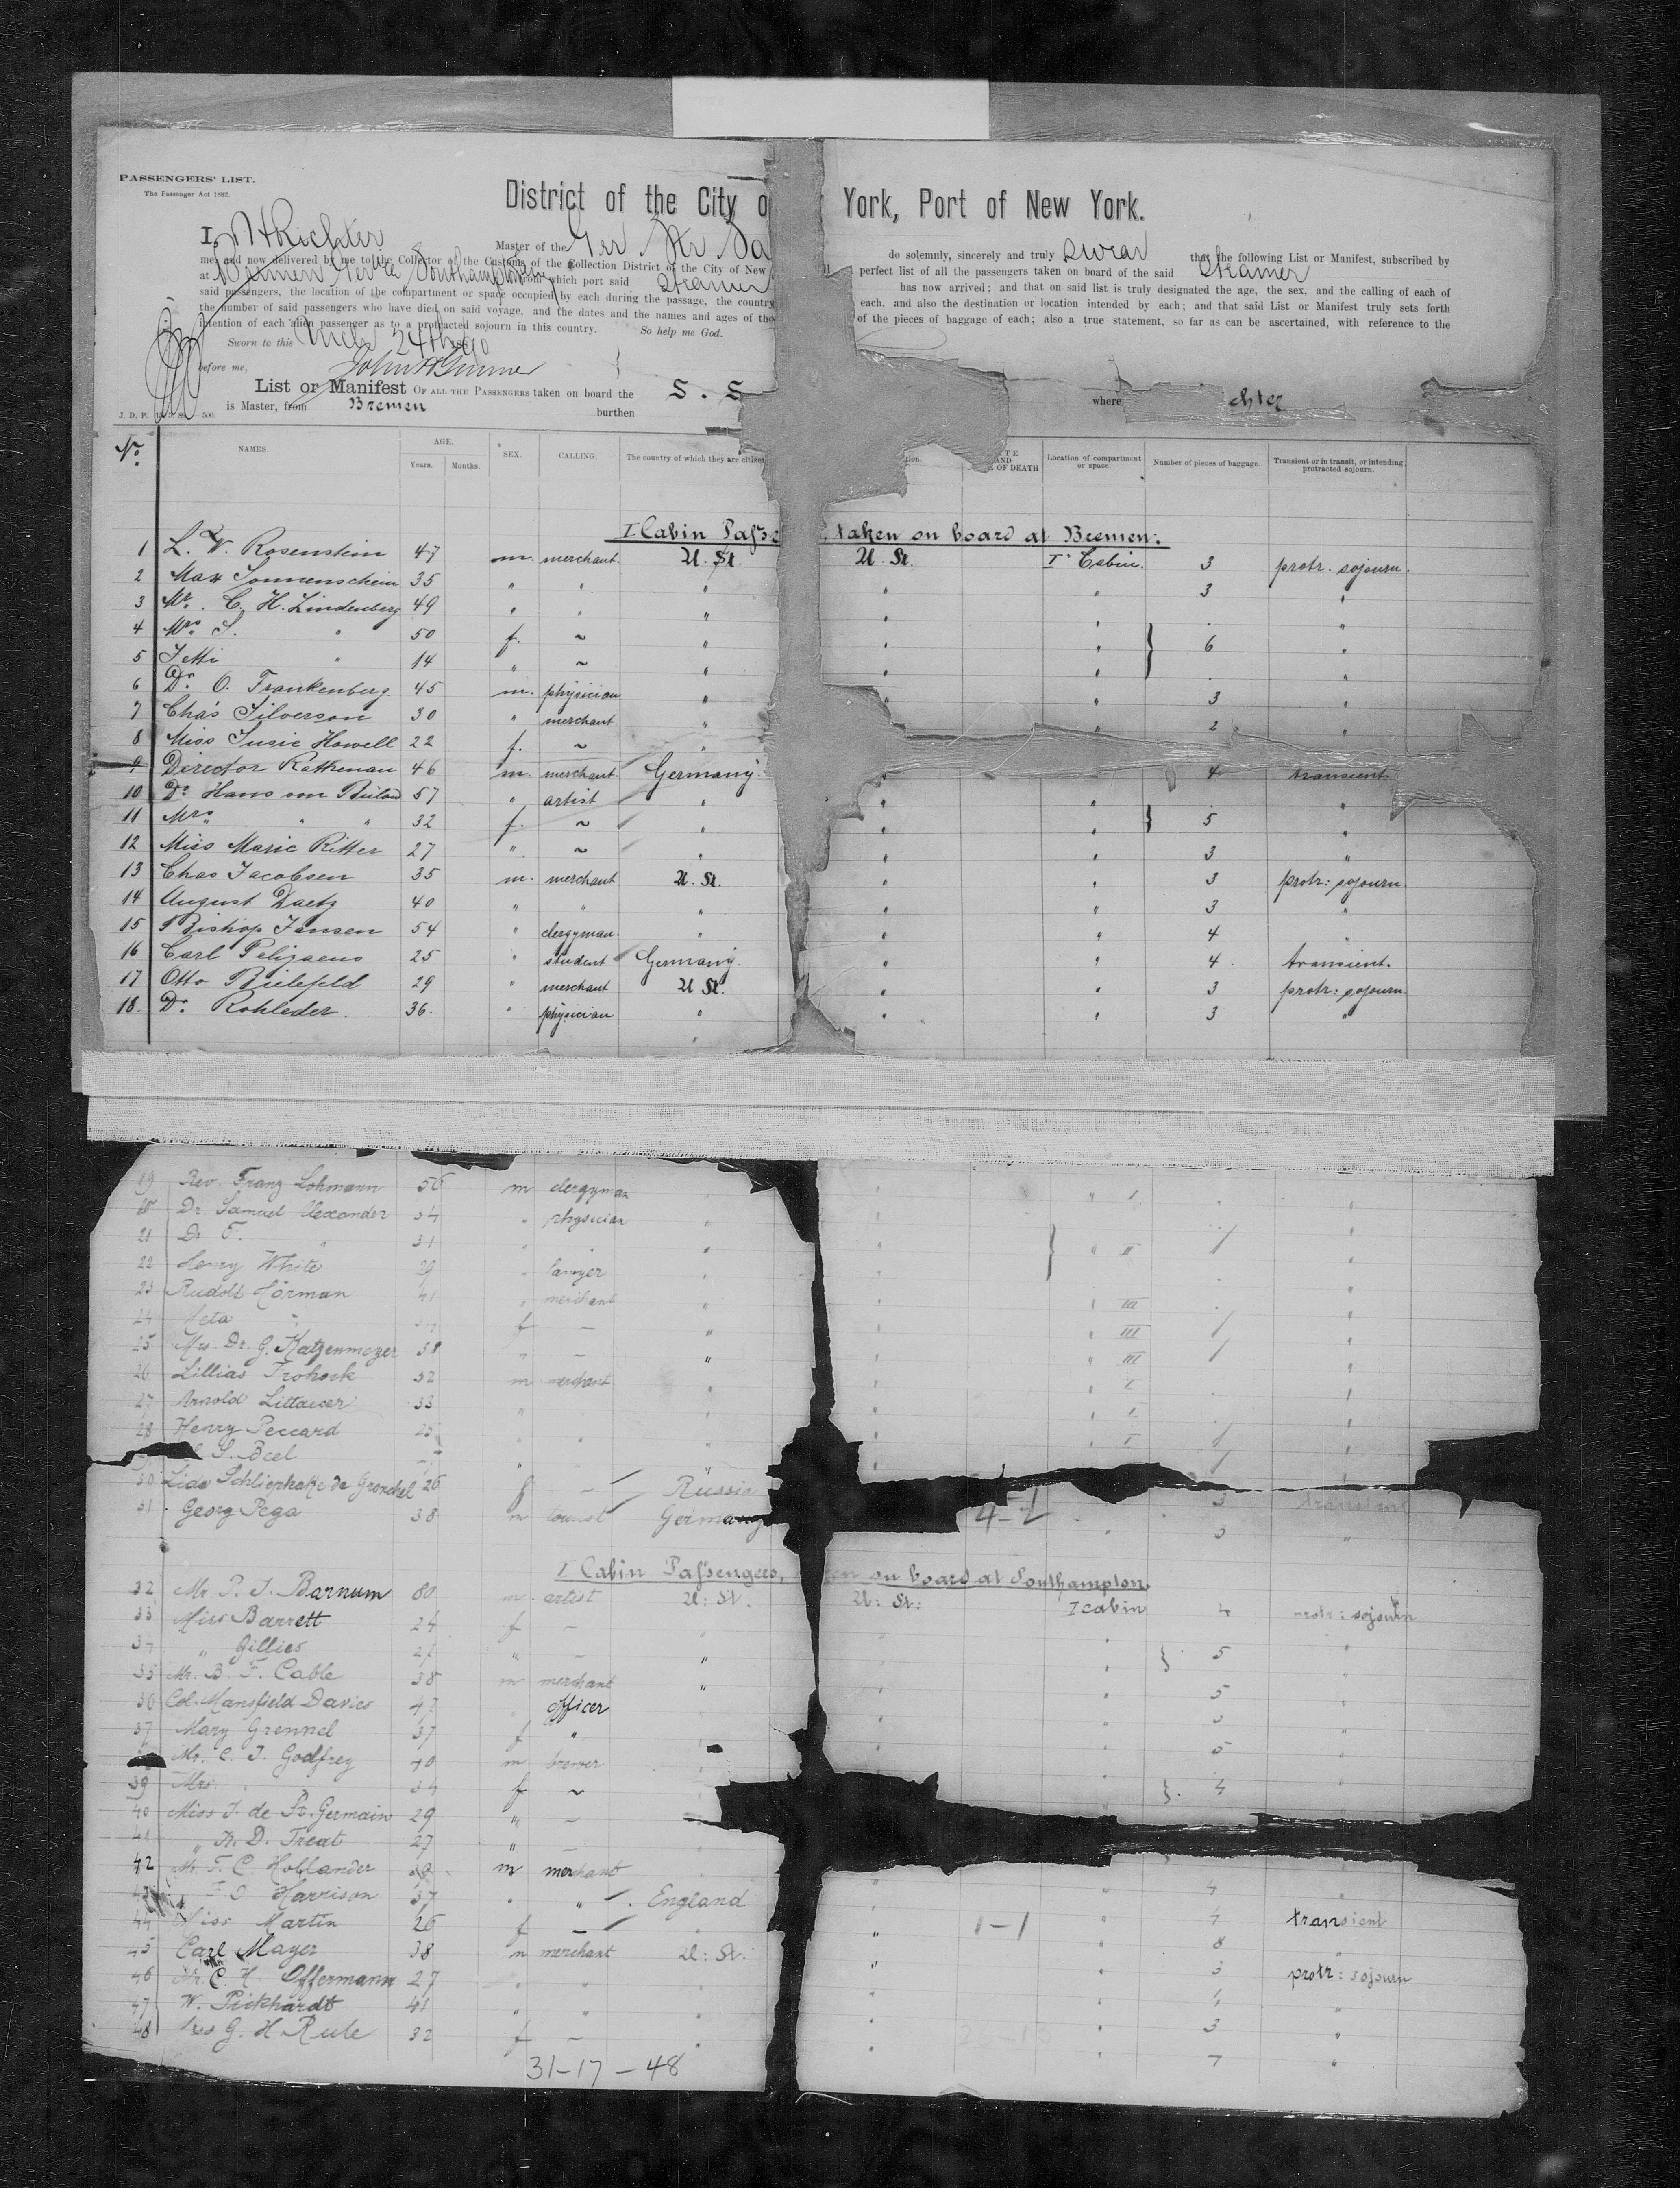 PASSENGERS' LIST.
The Passenger Act 1882.
District of the City o York, Port of New York.
I, Richter Master of the Ger Str Sa do solemnly, sincerely and truly swear that the following List or Manifest, subscribed by
me, and now delivered by me to the Collector of the Customs of the Collection District of the City of New perfect list of all the passengers taken on board of the said Steamer
at Bremen Southampton from which port said Steamer has now arrived; and that on said list is truly designated the age, the sex, and the calling of each of
said passengers, the location of the compartment or space occupied by each during the passage, the country each, and also the destination or location intended by each; and that said List or Manifest truly sets forth
the number of said passengers who have died on said voyage, and the dates and the names and ages of tho of the pieces of baggage of each; also a true statement, so far as can be ascertained, with reference to the
intention of each alien passenger as to a protracted sojourn in this country. So help me God.
Sworn to this 24th
before me, John
List or Manifest OF ALL THE PASSENGERS taken on board the S. S where chter
is Master, from Bremen burthen
No. NAMES. AGE. Years. Months. SEX. CALLING. The country of which they are citizen tion. OF DEATH Location of compartment or space. Number of pieces of baggage. Transient or in transit, or intending protracted sojourn.
I Cabin Passe taken on board at Bremen.
1 L. W. Rosenstein 47 m. merchant U. St. U. St. I Cabin. 3 protr. sojourn.
2 Max Sonnenschein 35 " " " " " 3 "
3 Mr. C. H. Lindenberg 49 " " " " " "
4 Mrs. S. " 50 f. ~ " " " 6 "
5 Jetti " 14 " ~ " " " "
6 Dr. O. Frankenberg 45 m. physician " " 3 "
7 Chas Silverson 30 " merchant " " 2 "
8 Miss Susie Howell 22 f. ~ "
9 Director Rathenau 46 m. merchant Germany " 4 transient
10 Dr. Hans von Bülow 57 " artist " " " "
11 Mrs. " " 32 f. ~ " " " 5 "
12 Miss Marie Ritter 27 " ~ " " " 3 "
13 Chas Jacobsen 35 m. merchant U. St. " " 3 protr: sojourn.
14 August Daetz 40 " " " " " 3 "
15 Bishop Jansen 54 " clergyman " " " 4 "
16 Carl Pelizaeus 25 " student Germany. " " 4 transient.
17 Otto Bielefeld 29 " merchant U St. " " 3 protr: sojourn.
18. Dr. Rohleder. 36. " physician " " " 3 "
19 Rev. Franz Lohmann 56 m clergyman " " I "
20 Dr. Samuel Alexander 34 " physician " " "
21 Dr. F. " 31 " " " " " II "
22 Henry White 29 " lawyer " " "
23 Rudolf Hörman 41 " merchant " " " III "
24 Meta " f – " " " III "
25 Mrs. Dr. G. Katzenmeyer 38 " – " " " III "
26 Lillias Frohock 32 m merchant " " " I "
27 Arnold Littauer 33 " " " " I "
28 Henry Peccard 25 " " " " " I "
S. Beel " " " " "
30 Lida Schliephake de Gronckel 26 f – Russia 3 transient
31 Georg Pega 38 m tourist Germany 4-1 " 3 "
I Cabin Passengers, en on board at Southampton.
32 Mr P. T. Barnum 80 m artist U: St. U: St: I cabin 4 protr: sojourn
33 Miss Barrett 24 f – " " "
34 " Gillies 27 " – " " 5 "
35 Mr. B. F. Cable 38 m merchant " " 5 "
36 Col. Mansfield Davies 47 " officer " 3
37 Mary Grennel 37 f " " 5 "
Mr. C. J. Godfrey 40 m brewer "
39 Mrs " 34 f ~ " 4 "
40 Miss J. de St. Germain 29 " –
41 " R. D. Treat 27 " –
42 Mr. F. C. Hollander m merchant
Harrison 37 " " England " " 4 "
44 Miss Martin 26 f – 1-1 " transient
45 Carl Mayer 38 m merchant U: St. " " 8 "
46 Mr. C. H. Offermann 27 " " " " 3 protr: sojourn
47 W. Pickhardt 41 " " " " "
48 Mrs G. H Rule 32 f – " " " 3 "
31-17-48 " 7 "